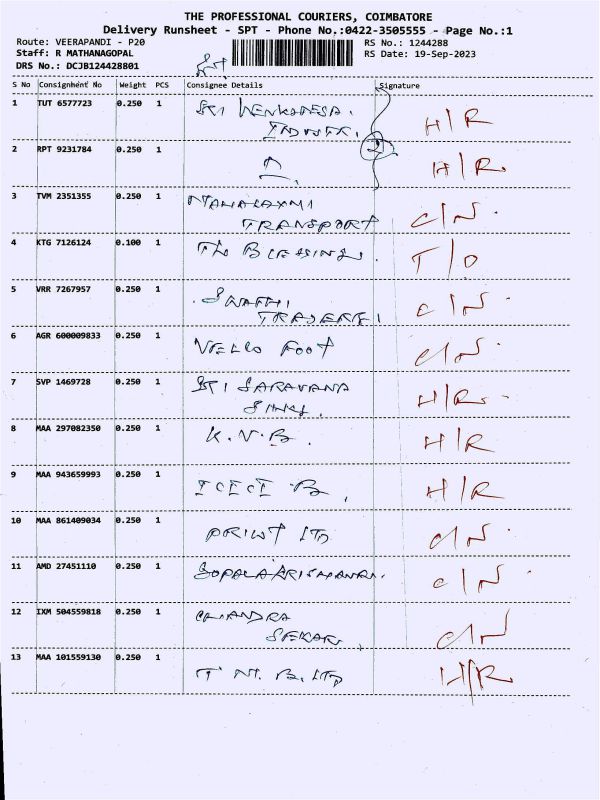 THE PROFESSIONAL COURIERS, COIMBATORE
Delivery Runsheet - SPT - Phone No.:0422-3505555 - Page No.:1
Route: VEERAPANDI - P20 RS No.: 1244288
Staff: R MATHANAGOPAL RS Date: 19-Sep-2023
DRS No.: DCJB124428801
S No Consignment No Weight PCS Consignee Details Signature
1 TUT 6577723 0.250 1 SRI VENKADESA. H/R
2 RPT 9231784 0.250 1 H/R
3 TVM 2351355 0.250 1 MAHALAXMI
TRANSPORT C/N
4 KTG 7126124 0.100 1 The BLESSINGS. T/O
5 VRR 7267957 0.250 1 SWATHI C/N
6 AGR 600009833 0.250 1 VELLO FOOT C/N
7 SVP 1469728 0.250 1 SRI SARAVANA H/R
8 MAA 297082350 0.250 1 K.V.B. H/R
9 MAA 943659993 0.250 1 ICICI B, H/R
10 MAA 861409034 0.250 1 PRINT LTD C/N
11 AMD 27451110 0.250 1 C/N
12 IXM 504559818 0.250 1 CHANDRA
SEKAR, C/N
13 MAA 101559130 0.250 1 T M. B. LTD H/R